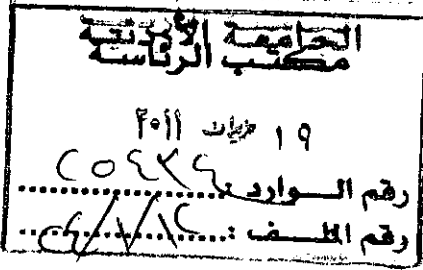 الجامعة الأردنية
مكتب الرئاسة
١٩ حزيران ٢٠١١
رقم الـوارد :
رقم الملـف :